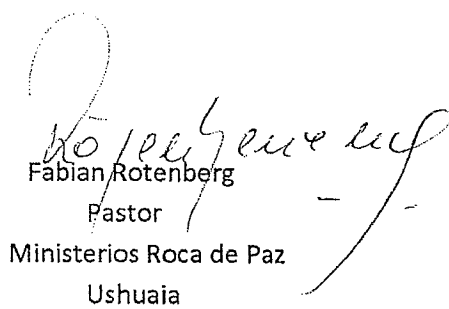 Fabian Rotenberg
Pastor
Ministerios Roca de Paz
Ushuaia